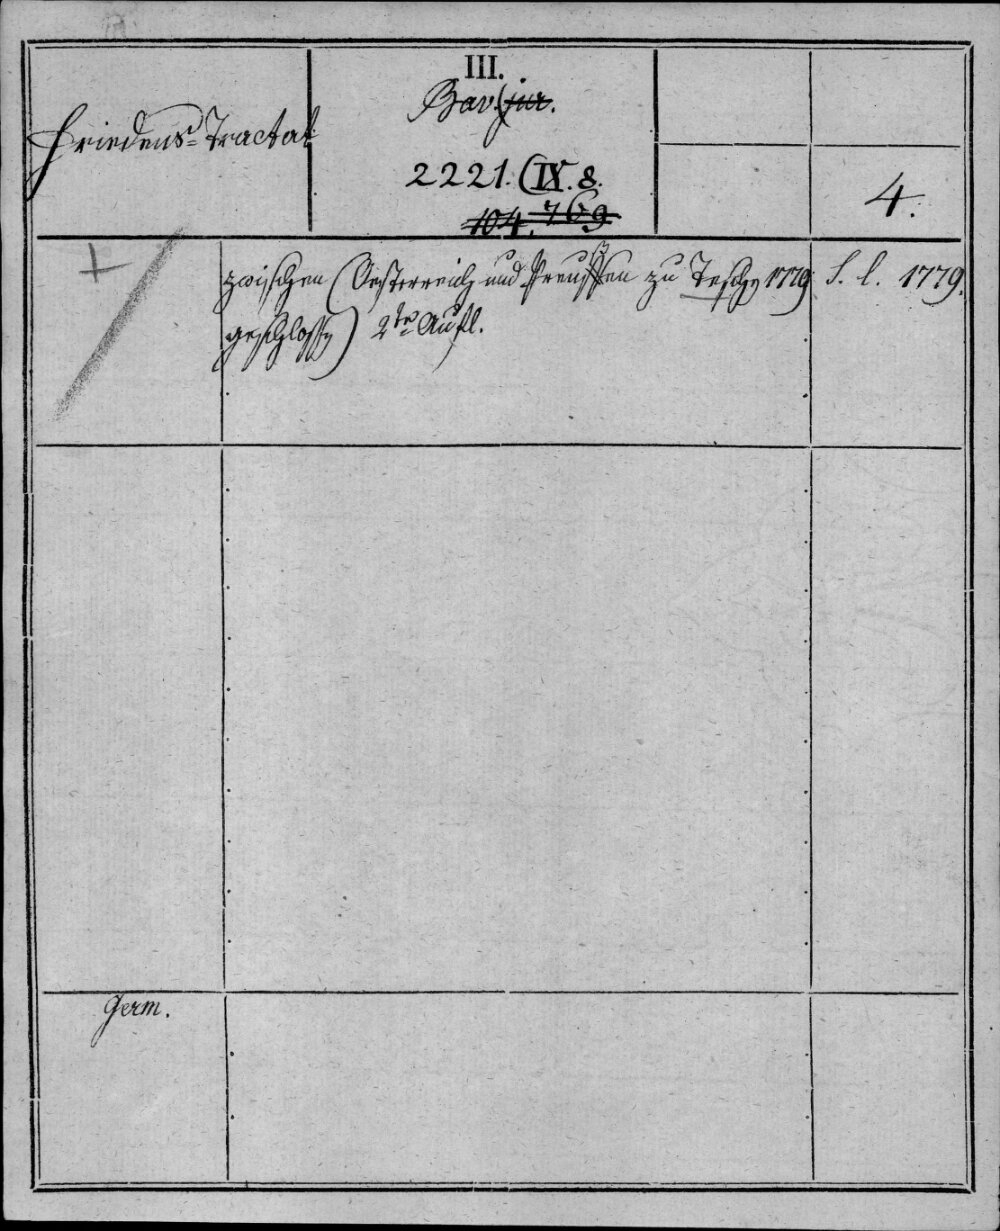 III.
Friedens-Tractat
Bav. jur.
2221. (IX. 8.
104. 769
4.
zwischen (Oesterreich und Preussen zu Teschen 1779 S. l. 1779.
geschlossen) 2te Aufl.
Germ.